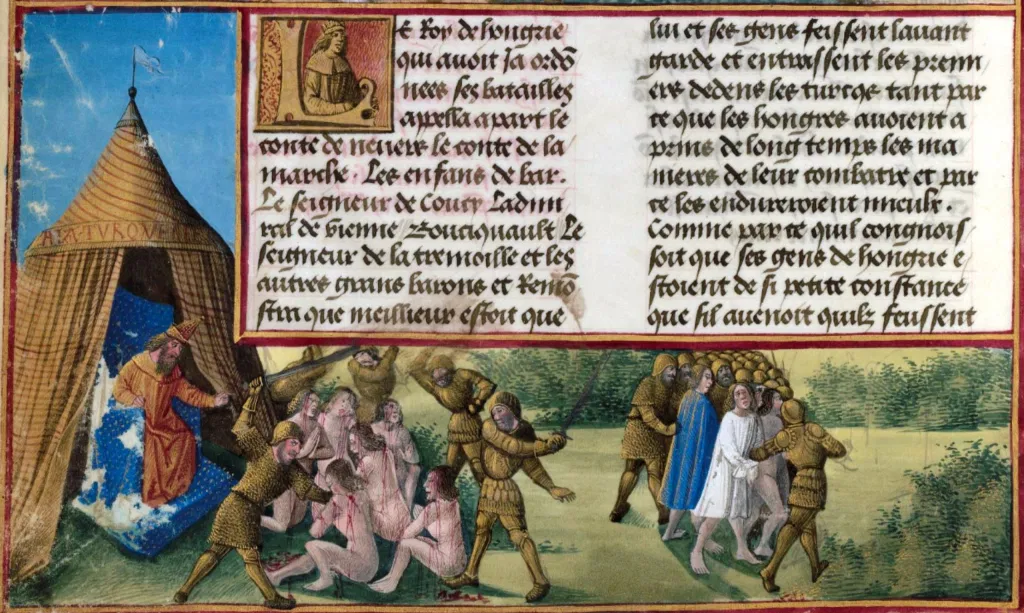 LE Roy de hongrie
qui avoit ja ordō
nees ses batailles
apella a part le
conte de nevers le conte de la
marche. Les enfans de bar.
Le seigneur de Coucy Ladmi
ral de vienne Bouciquault Le
seigneur de la tremoille et les
autres grans barons et Remō
stra que meillieur estoit que
lui et ses gens feissent lavant
garde et entrassent les premi
ers dedens les turcqs tant par
ce que les hongres avoient a
prins de long temps les ma
nieres de leur combatre et par
ce les endureroient mieulx.
Comme par ce quil congnois
soit que ses gens de hongrie e
stoient de si petite constance
que sil avenoit quilz feussent